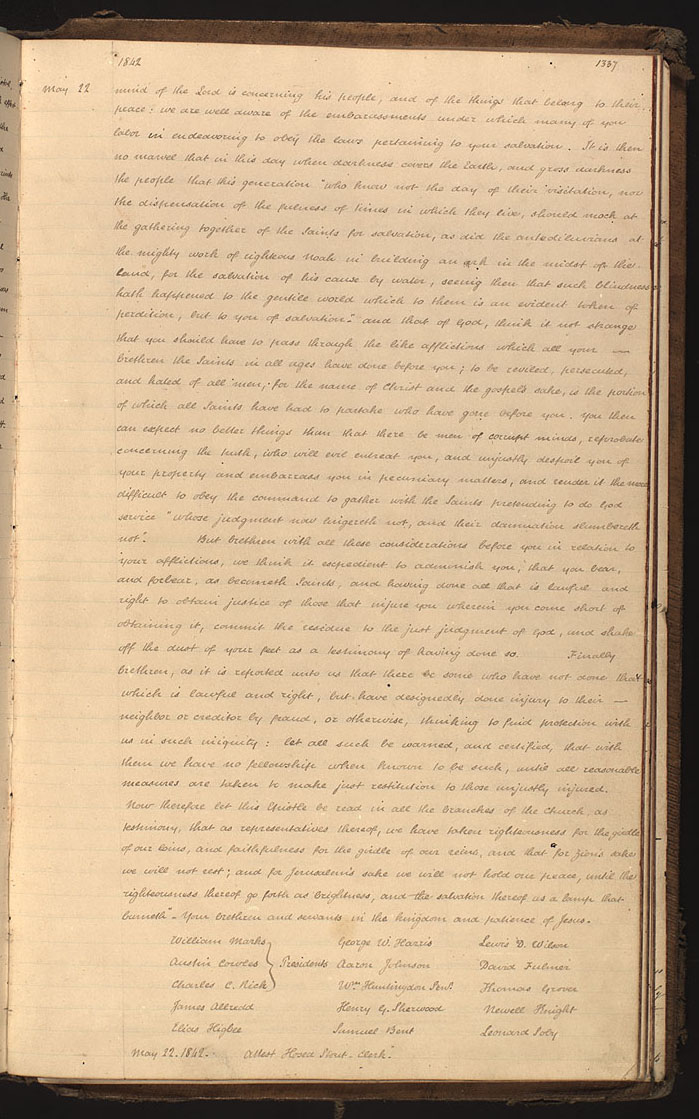 1842 1337
May 22 mind of the Lord is concerning his people, and of the things that belong to their
peace: we are well aware of the embarrassments under which many of you
labor in endeavoring to obey the laws pertaining to your salvation. It is then
no marvel that in this day when darkness covers the Earth, and gross darkness
the people that this generation "who know not the day of their visitation, nor
the dispensation of the fulness of times in which they live, should mock at
the gathering together of the Saints for salvation, as did the antediluvians at
the mighty work of righteous Noah in building an ark in the midst of the
land, for the salvation of his cause by water, seeing then that such blindness
hath happened to the gentile world which to them is an evident token of
perdition, but to you of salvation." and that of God, think it not strange
that you should have to pass through the like afflictions which all your —
brethren the Saints in all ages have done before you; to be reviled, persecuted,
and hated of all men, for the name of Christ and the gospel's sake, is the portion
of which all Saints have had to partake who have gone before you. You then
can expect no better things than that there be men of corrupt minds, reprobate
concerning the truth, who will evil entreat you, and unjustly despoil you of
your property and embarrass you in pecuniary matters, and render it the more
difficult to obey the command to gather with the Saints pretending to do God
service "whose judgment now lingereth not, and their damnation slumbereth
not". But brethren with all these considerations before you in relation to
your afflictions, we think it expedient to admonish you, that you bear,
and forbear, as becometh Saints, and having done all that is lawful and
right to obtain justice of those that injure you wherein you come short of
obtaining it, commit the residue to the just judgment of God, and shake
off the dust of your feet as a testimony of having done so. Finally
brethren, as it is reported unto us that there be some who have not done that
which is lawful and right, but have designedly done injury to their —
neighbor or creditor by fraud, or otherwise, thinking to find protection with
us in such iniquity: let all such be warned, and certified, that with
them we have no fellowship when known to be such, until all reasonable
measures are taken to make just restitution to those unjustly injured.
Now therefore let this Epistle be read in all the Branches of the Church, as
testimony, that as representatives thereof, we have taken righteousness for the girdle
of our loins, and faithfulness for the girdle of our reins, and that "for Zion's sake
we will not rest; and for Jerusalem's sake we will not hold our peace, until the
righteousness thereof go forth as brightness, and the salvation thereof as a lamp that
burneth" - Your brethren and servants in the kingdom and patience of Jesus.
William Marks George W. Harris Lewis D. Wilson
Austin Cowles } Presidents Aaron Johnson David Fulmer
Charles C. Rich Wm Huntingdon Senr. Thomas Grover
James Allredd Henry G. Sherwood Newell Knight
Elias Higbee Samuel Bent Leonard Soby
May 22. 1842. Attest Hosea Stout - Clerk."